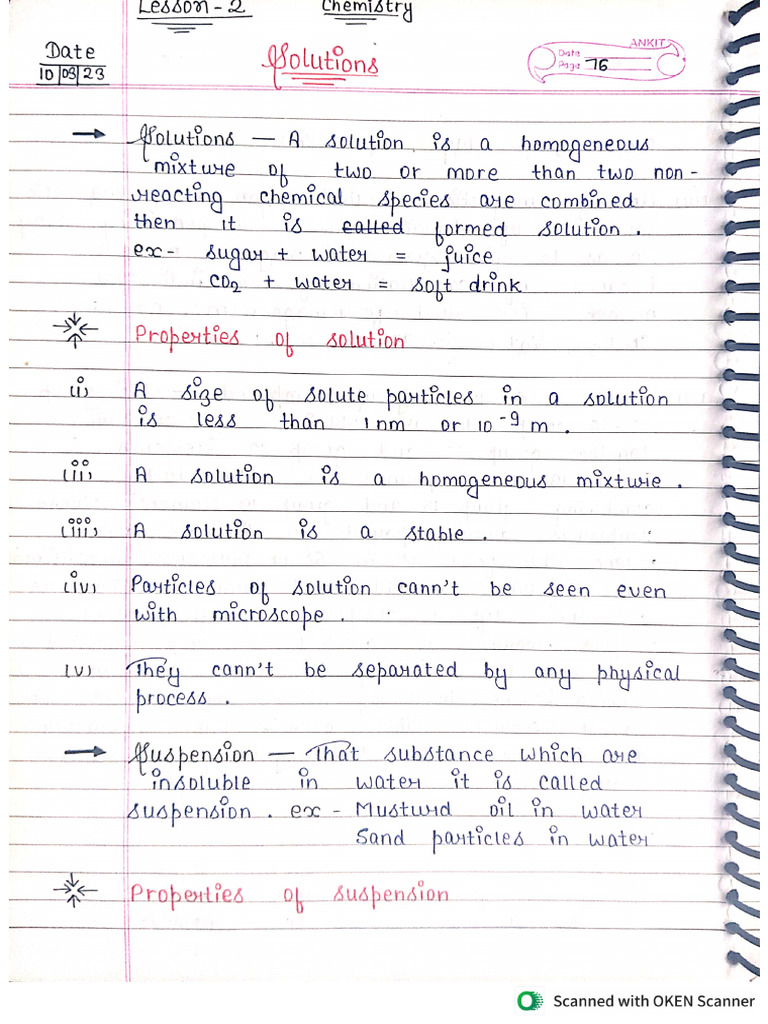 Lesson - 2 Chemistry
Date
10/03/23
Solutions
ANKIT
Date
Page 76
→ Solutions — A solution is a homogeneous
mixture of two or more than two non-
reacting chemical species are combined
then it is called formed solution.
ex- sugar + water = juice
CO2 + water = soft drink
Properties of solution
(i) A size of solute particles in a solution
is less than 1 nm or 10⁻⁹ m.
(ii) A solution is a homogeneous mixture.
(iii) A solution is a stable.
(iv) Particles of solution cann't be seen even
with microscope.
(v) They cann't be separated by any physical
process.
→ Suspension — That substance which are
insoluble in water it is called
suspension. ex - Musturd oil in water
Sand particles in water
Properties of suspension
Scanned with OKEN Scanner